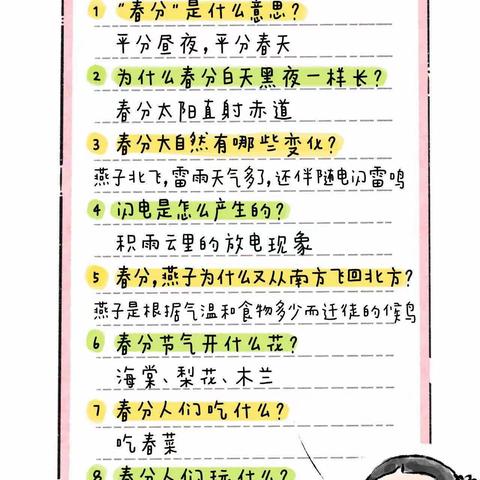 1 “春分”是什么意思?
平分昼夜,平分春天
2 为什么春分白天黑夜一样长?
春分太阳直射赤道
3 春分大自然有哪些变化?
燕子北飞,雷雨天气多了,还伴随电闪雷鸣
4 闪电是怎么产生的?
积雨云里的放电现象
5 春分,燕子为什么又从南方飞回北方?
燕子是根据气温和食物多少而迁徒的候鸟
6 春分节气开什么花?
海棠、梨花、木兰
7 春分人们吃什么?
吃春菜
8 春分人们玩什么?